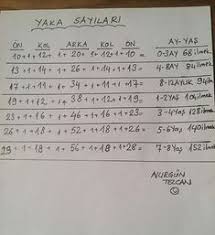 YAKA SAYILARI
ÖN KOL ARKA KOL ÖN AY-YAŞ
10+1+12+1+20+1+12+1+10= 0-3AY 68 ilmek
13+1+14+1+26+1+14+1+13= 4-8AY 84ilmek
17+1+11+1+34+1+11+1+17= 8-12AYLIK 94ilm
19+1+12+1+38+1+12+1+19= 1-2YAŞ 104ilmek
23+1+16+1+46+1+16+1+23= 3-4YAŞ 128ilmek
26+1+18+1+52+1+18+1+26= 5-6YAŞ 140ilmek
28+1+18+1+56+1+18+1+28= 7-8YAŞ 152ilmek
NURGÜN
TEZCAN